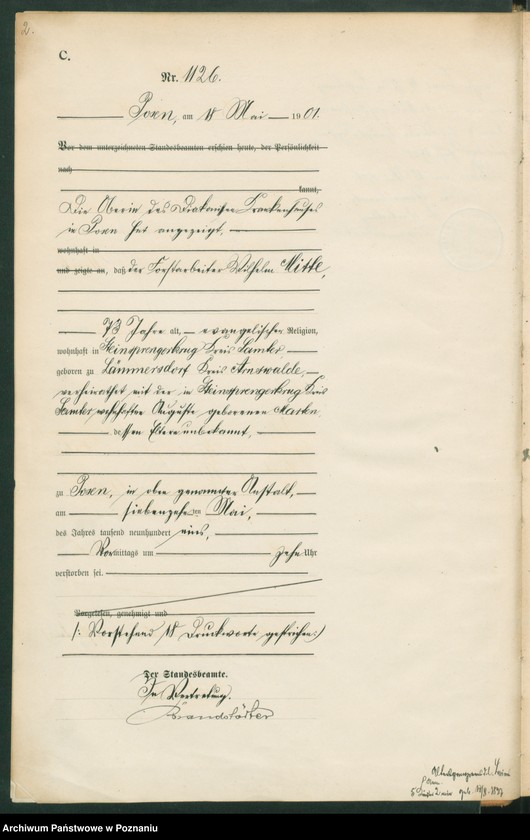 2.
C.
Nr. 1126.
Posen, am 18 Mai 1901.
Vor dem unterzeichneten Standesbeamten erschien heute, der Persönlichkeit
nach
kannt,
Die Oberin des Diakonissen Krankenhauses
in Posen hat angezeigt,
wohnhaft in
und zeigte an, daß der Forstarbeiter Wilhelm Mittke,
73 Jahre alt, evangelischer Religion,
wohnhaft in Kleinsprengerkrug Kreis Samter,
geboren zu Lämmersdorf Kreis Arnswalde,
verheirathet mit der in Kleinsprengerkrug Kreis
Samter wohnhaften Auguste geborenen
dessen Eltern unbekannt,
zu Posen, in oben genannter Anstalt,
am siebenzehnten Mai,
des Jahres tausend neunhundert eins,
Vormittags um zehn Uhr
verstorben sei.
Vorgelesen, genehmigt und
/: Vorstehend 18 Druckworte gestrichen :/
Der Standesbeamte.
In Vertretung.
Brandstätter
Archiwum Państwowe w Poznaniu